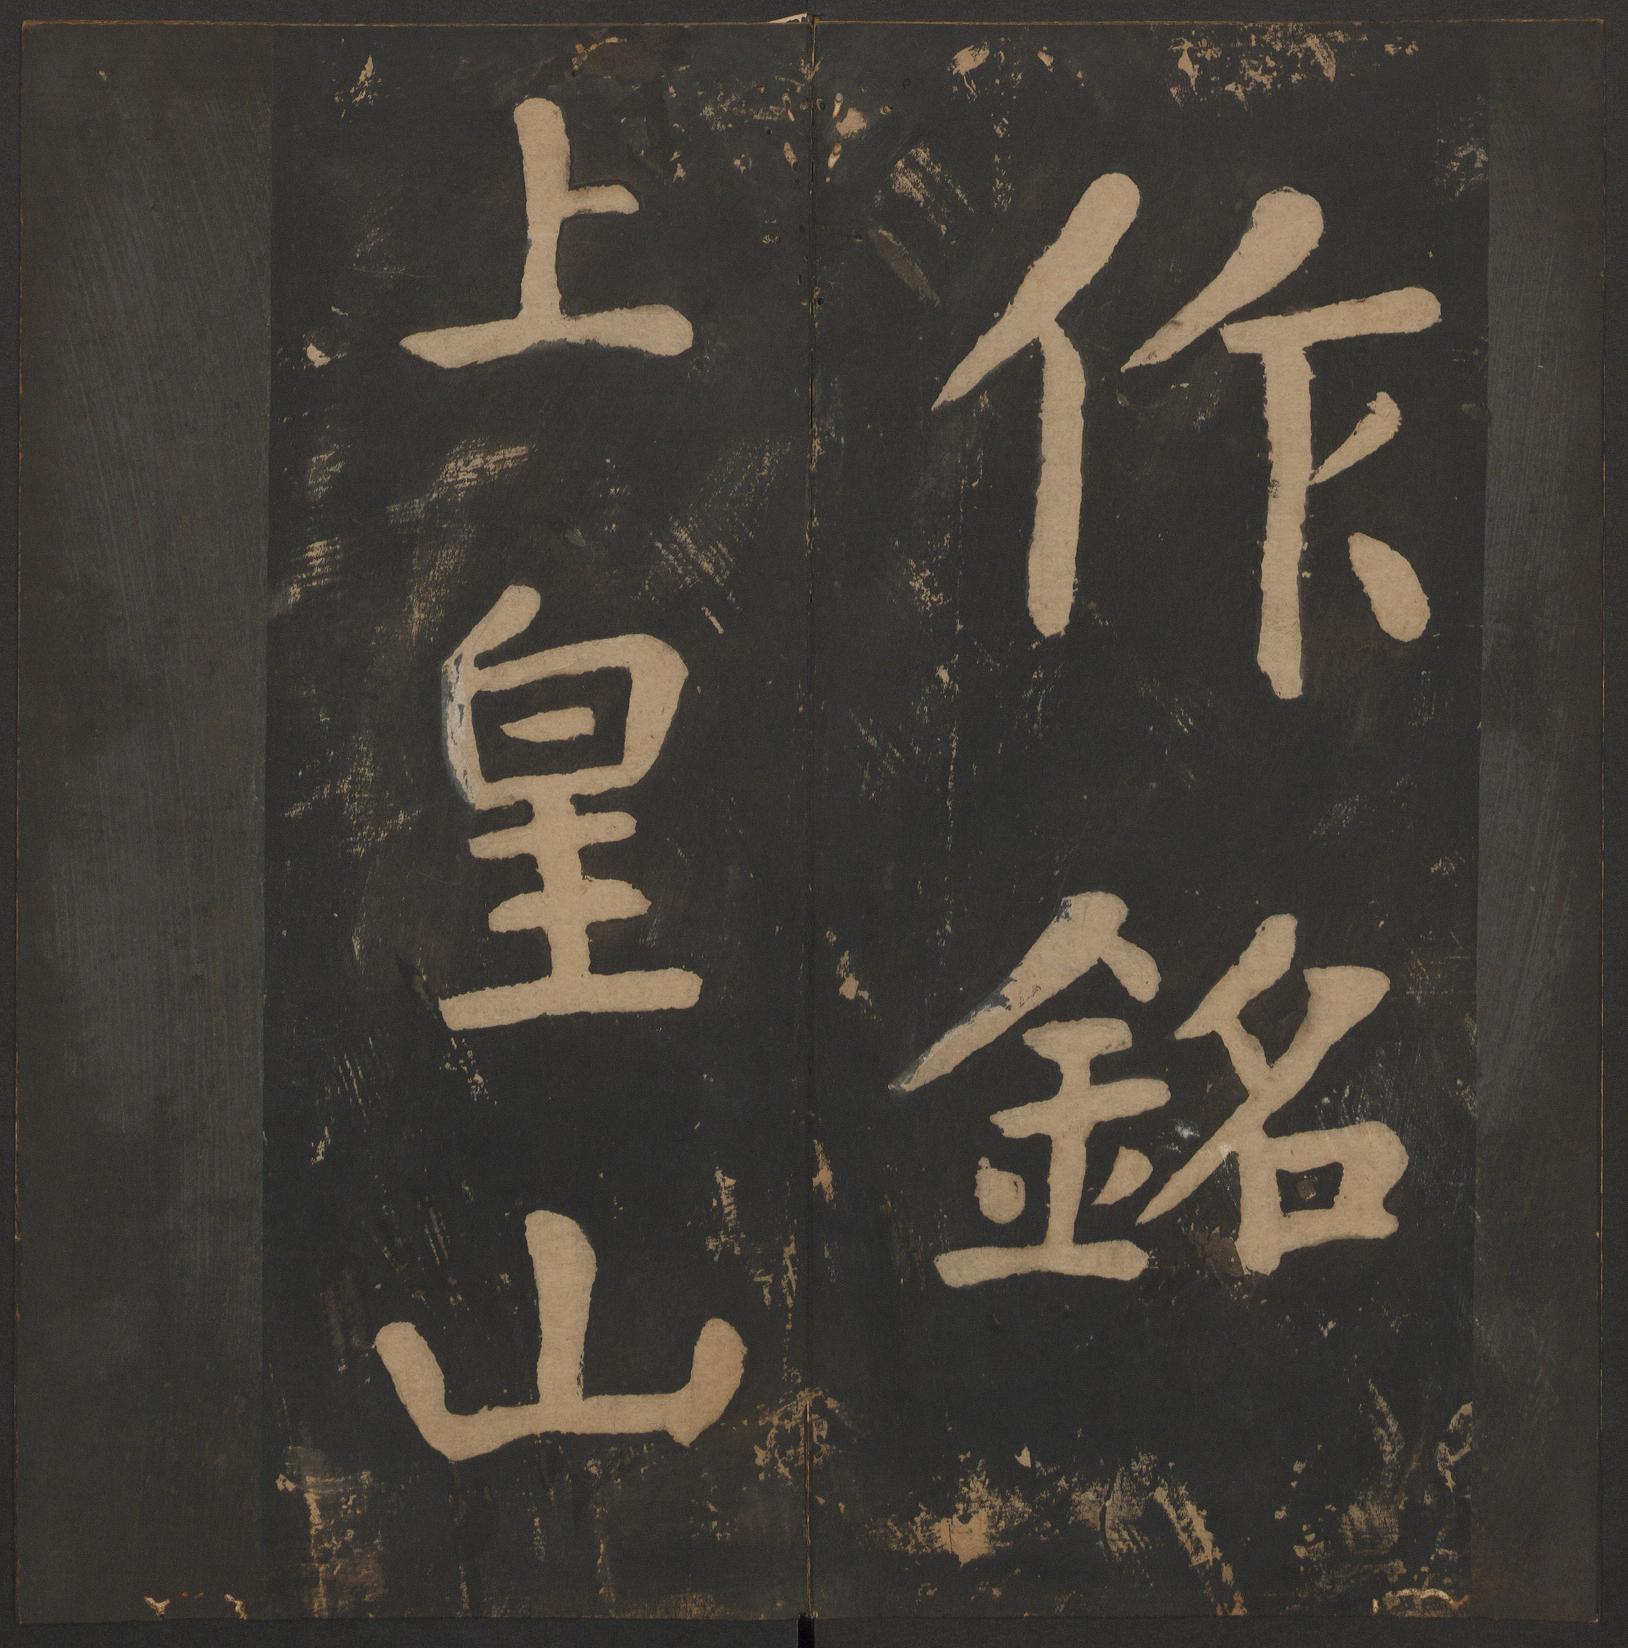 作銘
上皇山